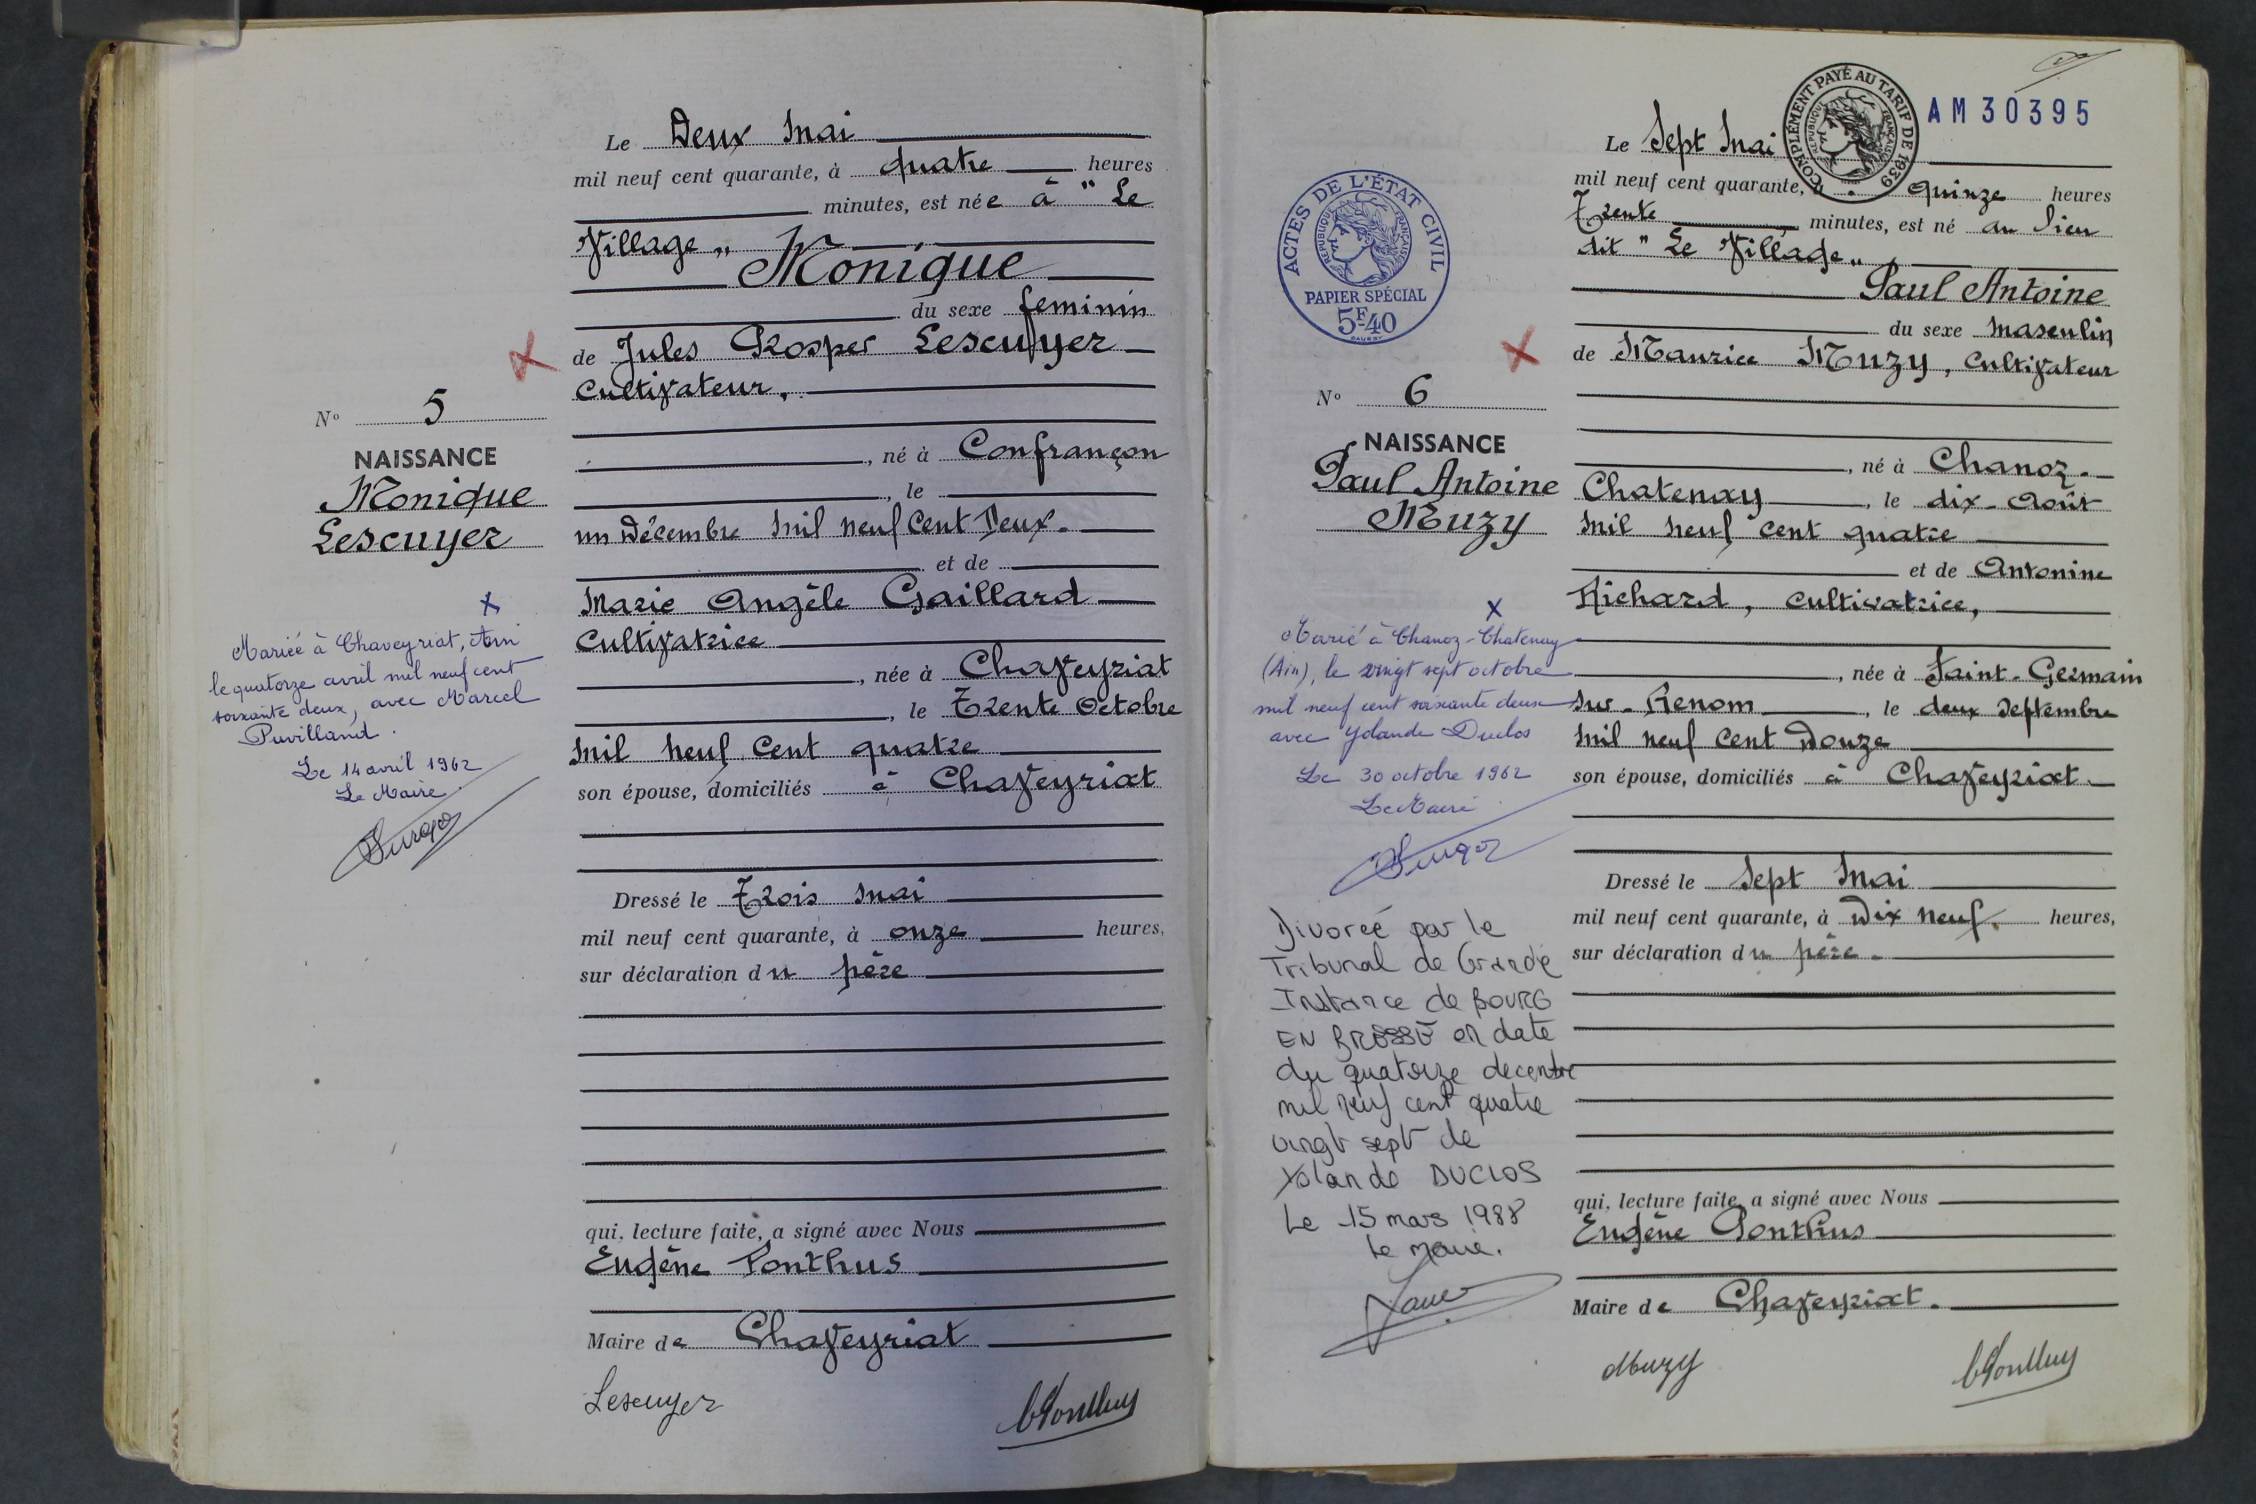 Le Deux Mai
mil neuf cent quarante, à quatre heures
minutes, est née à " Le
Village "
Monique
du sexe feminin
de Jules Prosper Lescuyer
Cultivateur,
N° 5
NAISSANCE
Monique
Lescuyer
, né à Confrançon
, le
un Décembre Mil neuf Cent Deux.
et de
Marie Angèle Gaillard
Cultivatrice
, née à Chaveyriat
, le Trente Octobre
Mil neuf Cent quatre
son épouse, domiciliés à Chaveyriat
x
Mariée à Chaveyriat, Ain
le quatorze avril mil neuf cent
soixante deux, avec Marcel
Puvilland.
Le 14 avril 1962
Le Maire
Dressé le Trois Mai
mil neuf cent quarante, à onze heures,
sur déclaration du père
qui, lecture faite, a signé avec Nous
Eugène Ponthus
Maire de Chaveyriat
Lescuyer
Ponthus
AM30395
COMPLÉMENT PAYÉ AU TARIF DE 1939
RÉPUBLIQUE FRANÇAISE
ACTES DE L'ÉTAT CIVIL
RÉPUBLIQUE FRANÇAISE
PAPIER SPÉCIAL
5F40
Le Sept Mai
mil neuf cent quarante, à quinze heures
Trente minutes, est né au lieu
dit " Le Village "
Paul Antoine
du sexe Masculin
de Maurice Muzy, Cultivateur
N° 6
NAISSANCE
Paul Antoine
Muzy
, né à Chanoz-
Chatenay, le dix-Août
Mil neuf cent quatre
et de Antonine
Richard, Cultivatrice,
, née à Saint-Germain
sur-Renom, le deux Septembre
Mil neuf Cent Douze
son épouse, domiciliés à Chaveyriat.
x
Marié à Chanoz-Chatenay
(Ain), le vingt sept octobre
mil neuf cent soixante deux
avec Yolande Duclos
Le 30 octobre 1962
Le Maire
Divorcé par le
Tribunal de Grande
Instance de BOURG
EN BRESSE en date
du quatorze decembre
mil neuf cent quatre
vingt sept de
Yolande DUCLOS
Le 15 mars 1988
Le Maire.
Dressé le Sept Mai
mil neuf cent quarante, à Dix neuf. heures,
sur déclaration du père.
qui, lecture faite, a signé avec Nous
Eugène Ponthus
Maire de Chaveyriat.
Muzy
Ponthus